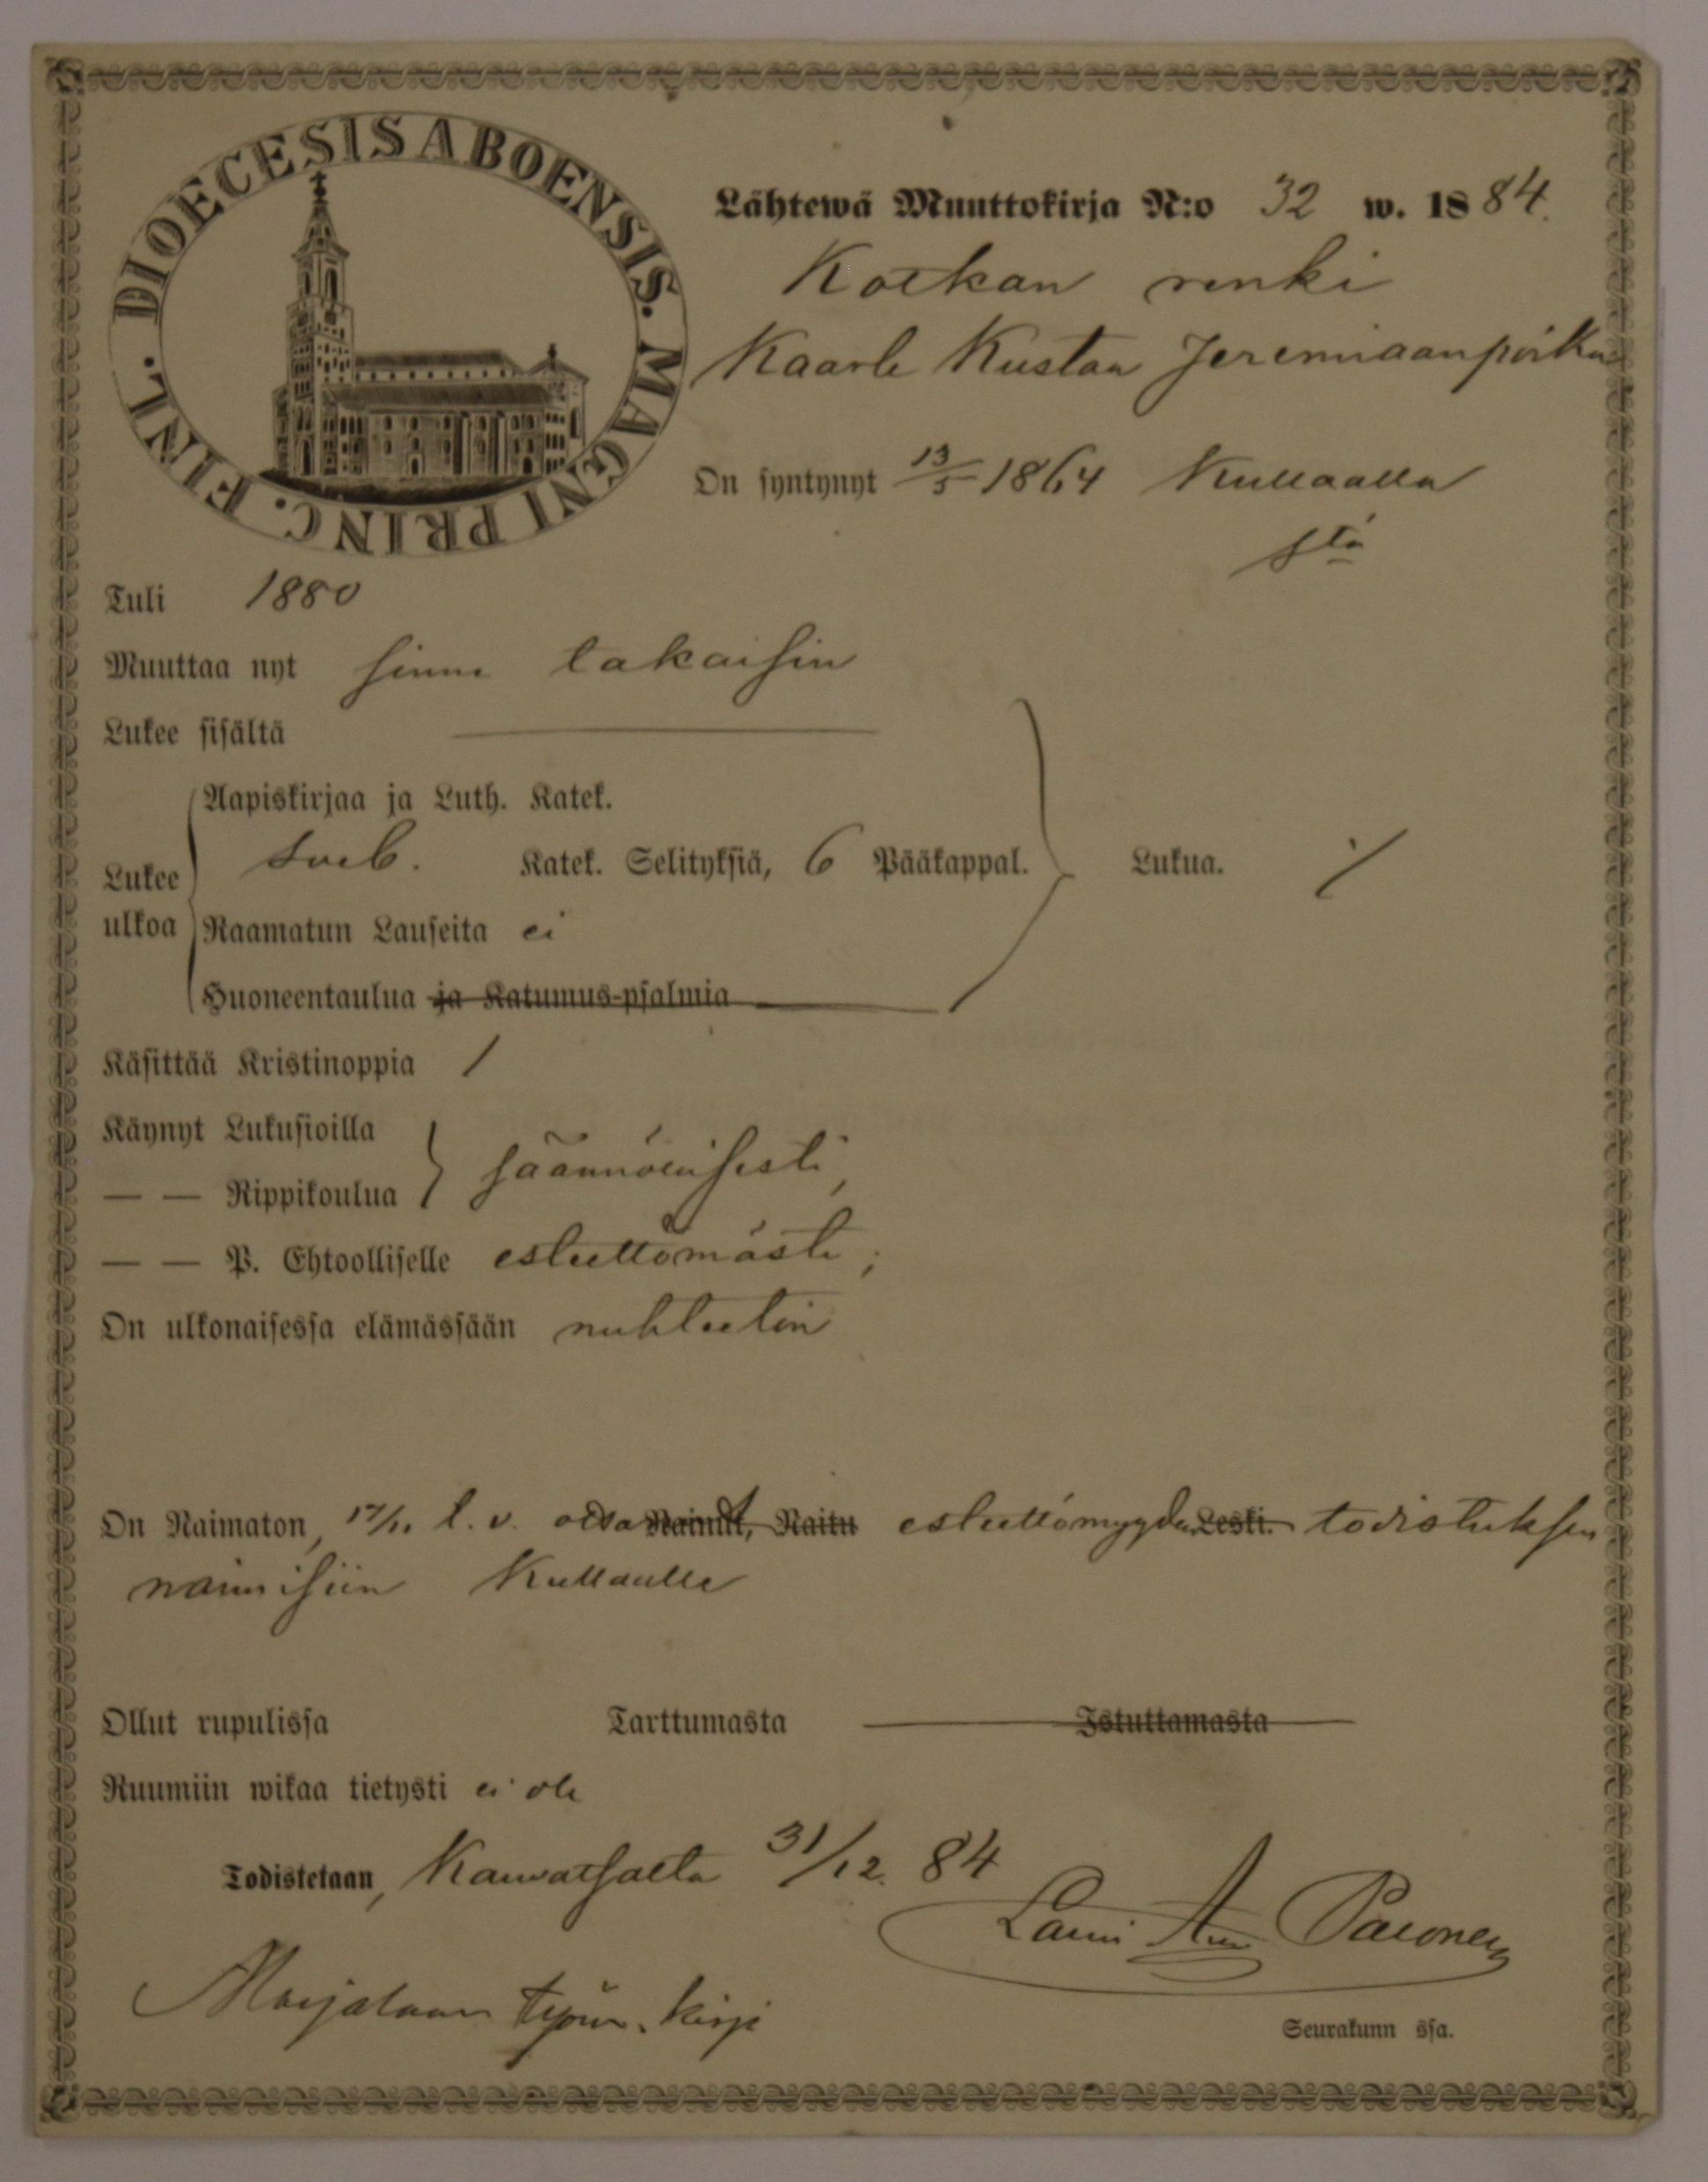 DIOECESIS ABOENSIS. MAGNI PRINC. FINL.
Lähtewä Muuttokirja N:o 32 w. 1884.
Koskan renki
Kaarle Kustaa Jeremiaanpoika
On syntynyt 13/5 1864 Kullaalla
stä
Tuli 1880
Muuttaa nyt sinne takaisin
Lukee sisältä
Aapiskirjaa ja Luth. Katek.
Lukee ulkoa
Sveb. Katek. Selityksiä, 6 Pääkappal. Lukua.
Raamatun Lauseita ei
Huoneentaulua ja Katumus-psalmia
Käsittää Kristinoppia 1
Käynyt Lukusioilla
— — Rippikoulua säännöllisesti,
— — P. Ehtoolliselle esteettömästi;
On ulkonaisessa elämässään nuhteeton
On Naimaton, l. v. otsa Nainut, Naitu esteettömyyden Leski. todistuksen
naimisiin Kullaalle
Ollut rupulissa Tarttumasta Istuttamasta
Ruumiin wikaa tietysti ei ole
Todistetaan, Kauvatsalta 31/12. 84
Lauri Paeonen
Seurakunn ssa.
kirje